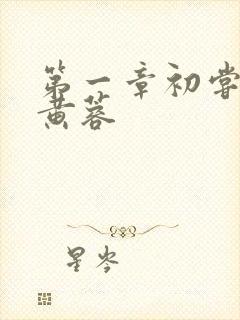 第一章初尝
黄蓉
星岑